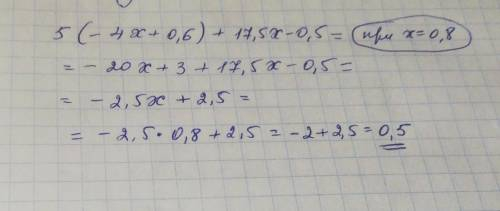 5 (- 4x + 0,6) + 17,5x - 0,5 = при x = 0,8
= - 20x + 3 + 17,5x - 0,5 =
= - 2,5x + 2,5 =
= - 2,5 · 0,8 + 2,5 = - 2 + 2,5 = 0,5